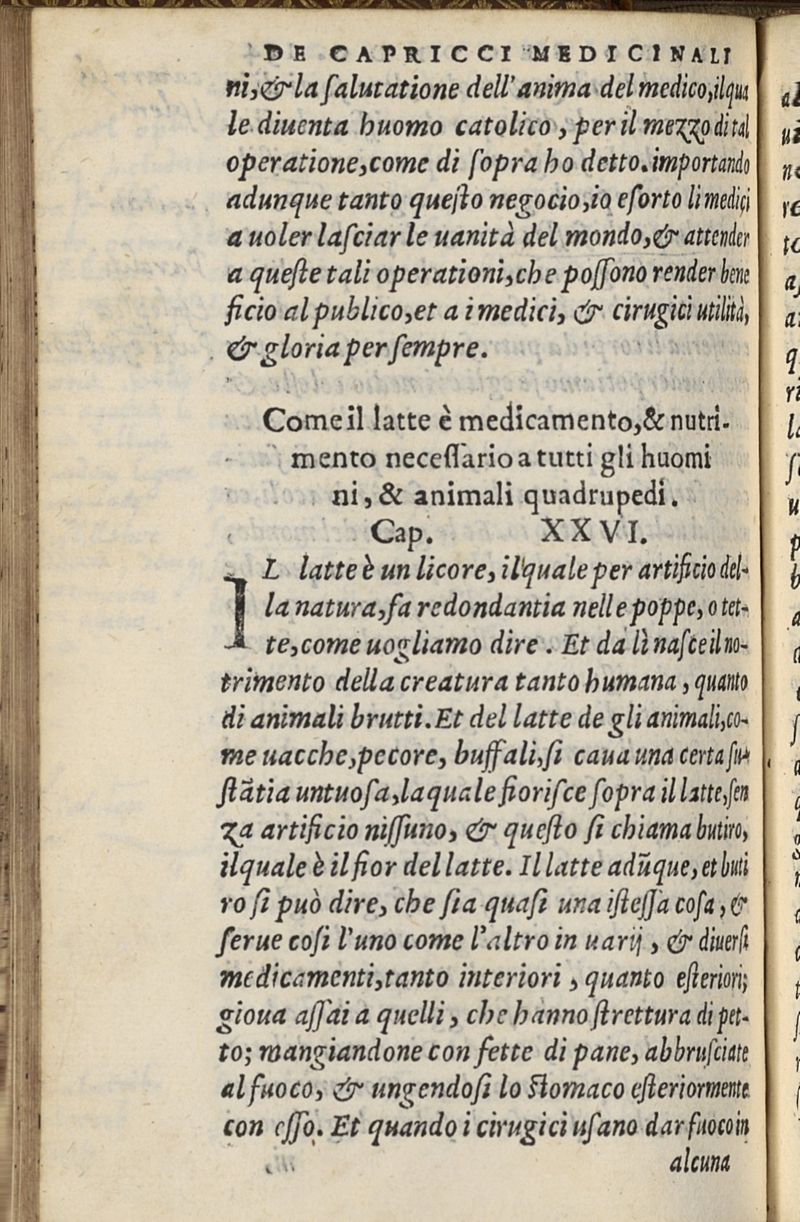 DE CAPRICCI MEDICINALI
ni, & la ſalutatione dell'anima del medico, ilqua
le diuenta huomo catolico, per il mezzo di tal
operatione, come di ſopra ho detto. importando
adunque tanto queſto negocio, io eſorto li medici
a uoler laſciar le uanità del mondo, & attender
a queſte tali operationi, che poſſono render bene
ficio al publico, et a i medici, & cirugici utilità,
& gloria per ſempre.
Come il latte è medicamento, & nutri-
mento neceſſario a tutti gli huomi
ni, & animali quadrupedi.
Cap. XXVI.
IL latte è un licore, ilquale per artificio del-
la natura, fa redondantia nelle poppe, o tet-
te, come uogliamo dire. Et da lì naſce il no-
trimento della creatura tanto humana, quanto
di animali brutti. Et del latte de gli animali, co-
me uacche, pecore, buffali, ſi caua una certa ſu-
ſtãtia untuoſa, laquale fioriſce ſopra il latte, ſen
za artificio niſſuno, & queſto ſi chiama butiro,
ilquale è il fior del latte. Il latte adũque, et buti
ro ſi può dire, che ſia quaſi una iſteſſa coſa, &
ſerue coſi l'uno come l'altro in uarij, & diuerſi
medicamenti, tanto interiori, quanto eſteriori;
gioua aſſai a quelli, che hanno ſtrettura di pet-
to; mangiandone con fette di pane, abbruſciate
al fuoco, & ungendoſi lo ſtomaco eſteriormente
con eſſo. Et quando i cirugici uſano dar fuoco in
alcuna